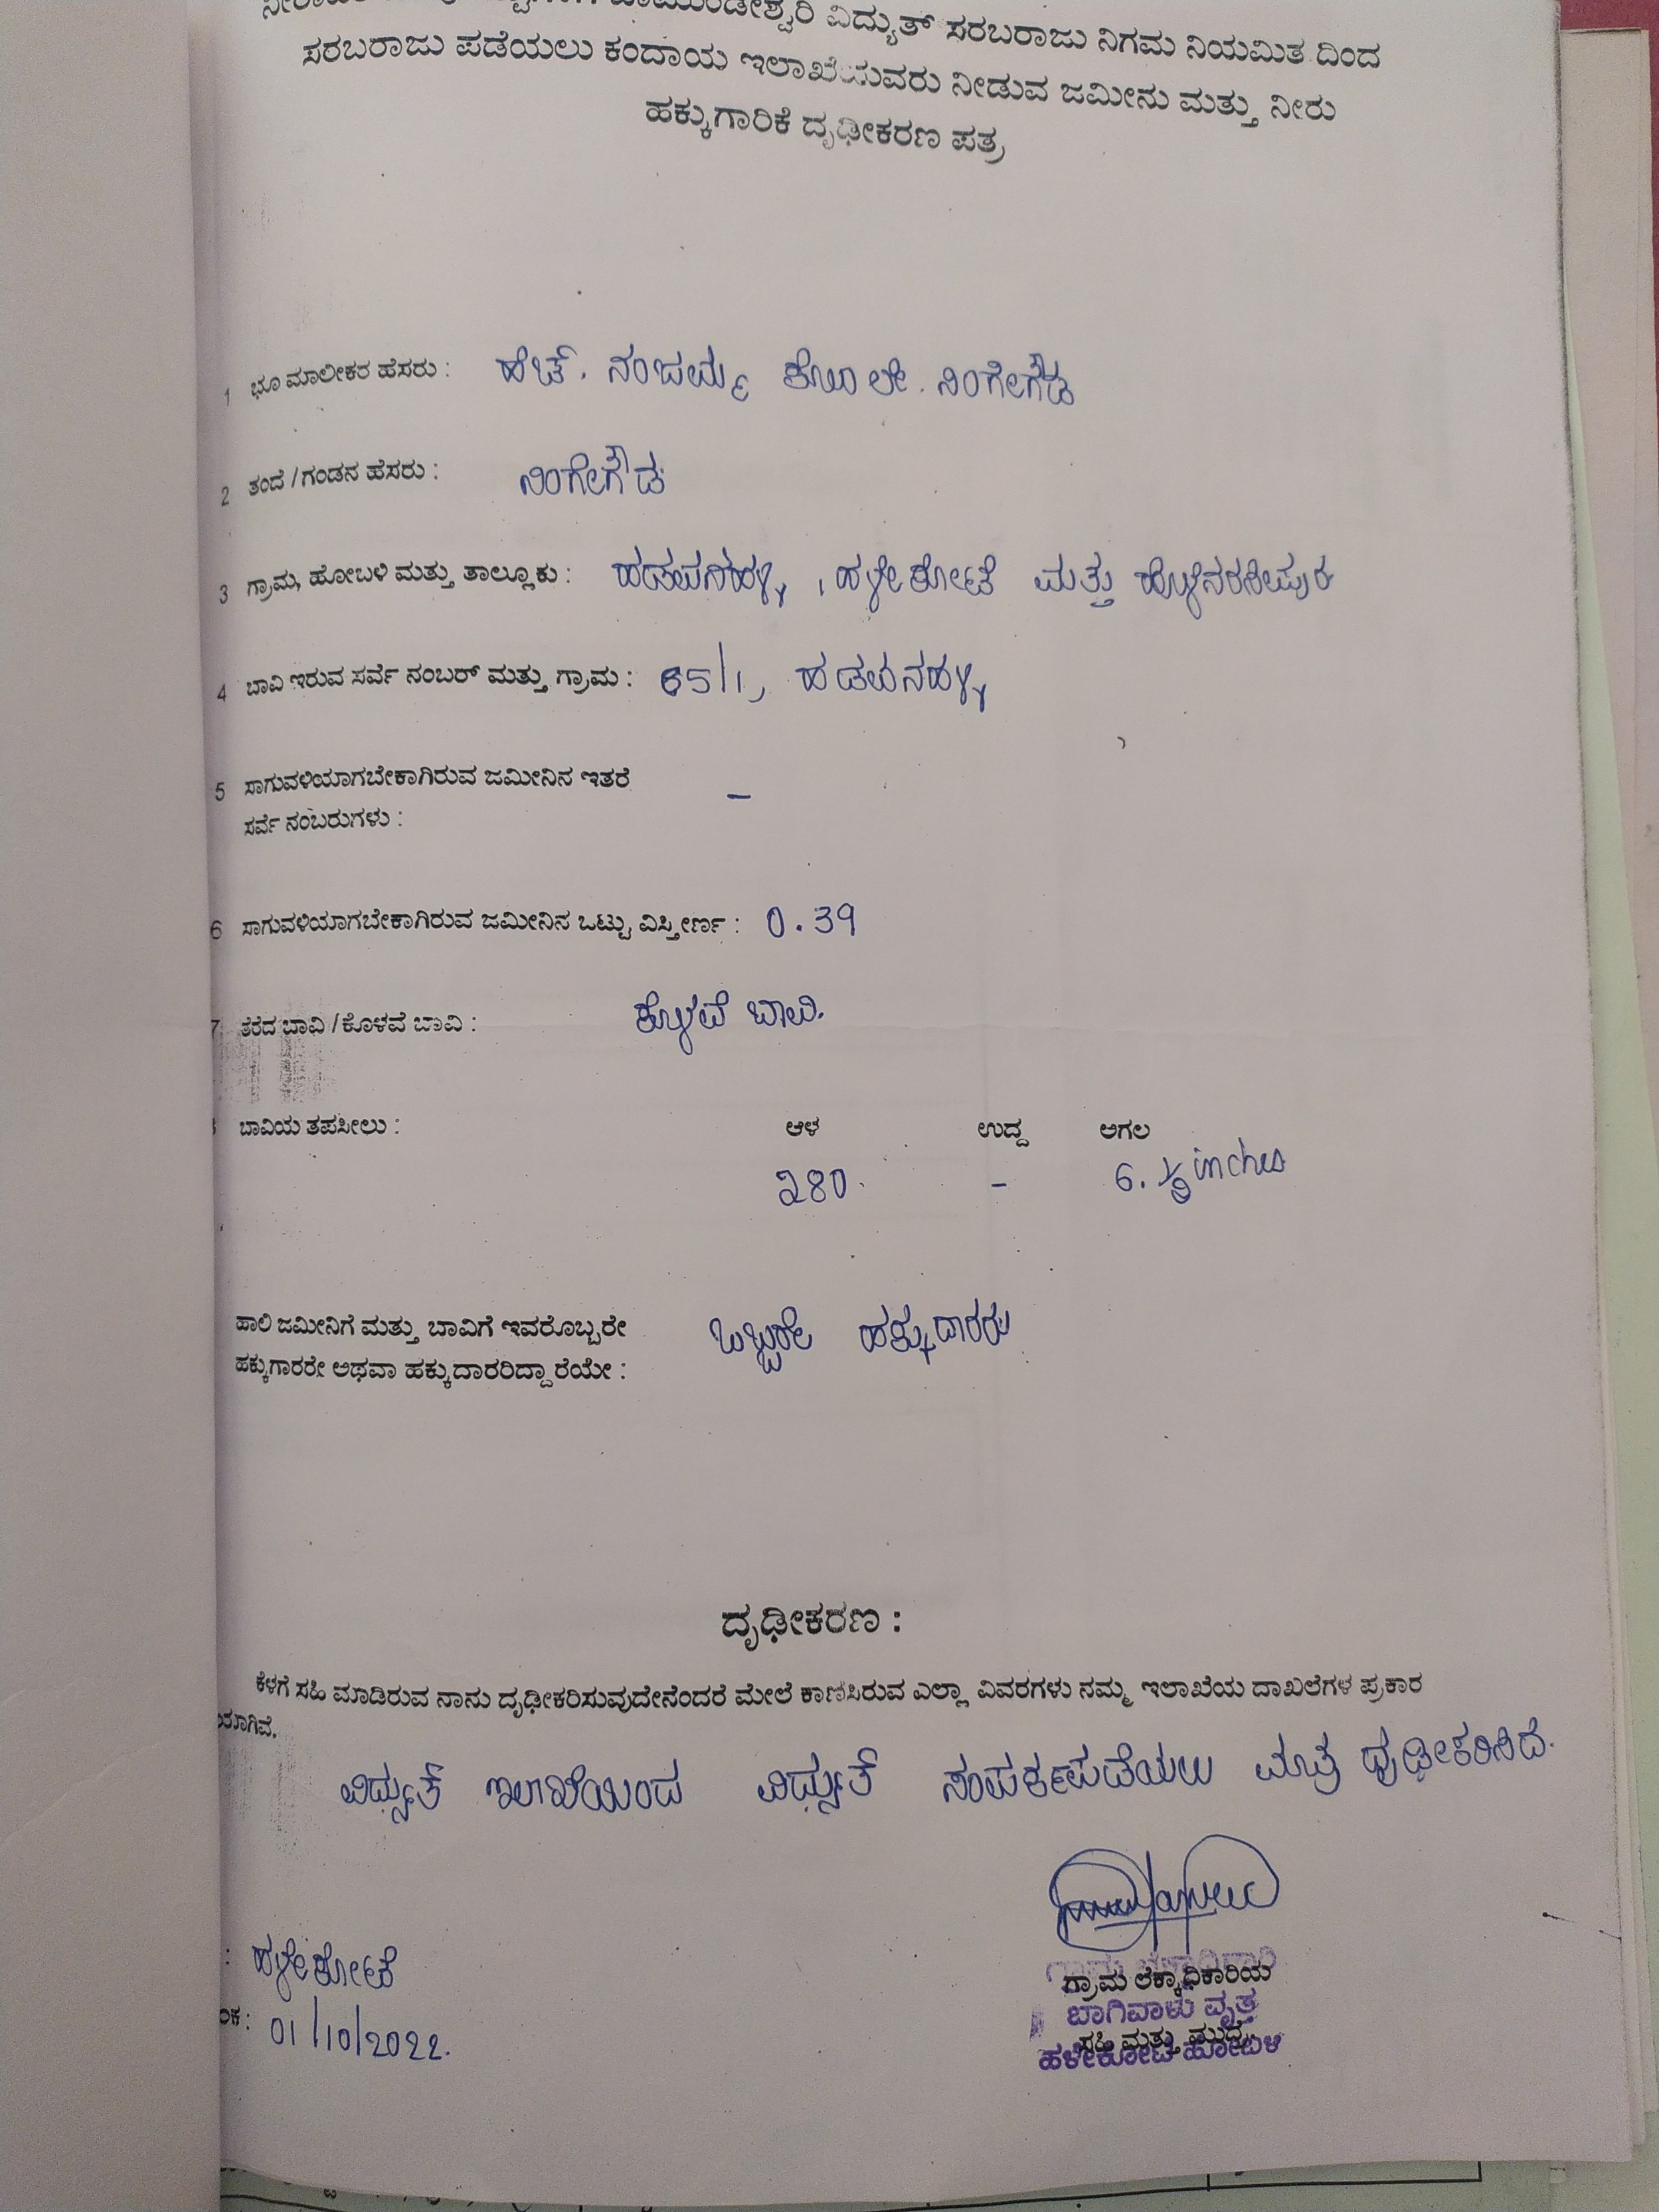 ಚಾಮುಂಡೇಶ್ವರಿ ವಿದ್ಯುತ್ ಸರಬರಾಜು ನಿಗಮ ನಿಯಮಿತ ದಿಂದ
ಸರಬರಾಜು ಪಡೆಯಲು ಕಂದಾಯ ಇಲಾಖೆಯವರು ನೀಡುವ ಜಮೀನು ಮತ್ತು ನೀರು
ಹಕ್ಕುಗಾರಿಕೆ ದೃಢೀಕರಣ ಪತ್ರ
1 ಭೂ ಮಾಲೀಕರ ಹೆಸರು : ಹೆಚ್. ನಂಜಮ್ಮ ಕೋಂ ಲೇ. ನಿಂಗೇಗೌಡ
2 ತಂದೆ / ಗಂಡನ ಹೆಸರು : ನಿಂಗೇಗೌಡ
3 ಗ್ರಾಮ, ಹೋಬಳಿ ಮತ್ತು ತಾಲ್ಲೂಕು : ಹಡವನಹಳ್ಳಿ, ಹಳೇಕೋಟೆ ಮತ್ತು ಹೊಳೆನರಸೀಪುರ
4 ಬಾವಿ ಇರುವ ಸರ್ವೆ ನಂಬರ್ ಮತ್ತು ಗ್ರಾಮ : 65/1, ಹಡವನಹಳ್ಳಿ
5 ಸಾಗುವಳಿಯಾಗಬೇಕಾಗಿರುವ ಜಮೀನಿನ ಇತರೆ –
ಸರ್ವೆ ನಂಬರುಗಳು :
6 ಸಾಗುವಳಿಯಾಗಬೇಕಾಗಿರುವ ಜಮೀನಿನ ಒಟ್ಟು ವಿಸ್ತೀರ್ಣ : 0.39
7 ತೆರೆದ ಬಾವಿ / ಕೊಳವೆ ಬಾವಿ : ಕೊಳವೆ ಬಾವಿ.
ಬಾವಿಯ ತಪಸೀಲು : ಆಳ ಉದ್ದ ಅಗಲ
280. – 6. ½ inches
ಹಾಲಿ ಜಮೀನಿಗೆ ಮತ್ತು ಬಾವಿಗೆ ಇವರೊಬ್ಬರೇ ಒಬ್ಬರೇ ಹಕ್ಕುದಾರರು
ಹಕ್ಕುಗಾರರೇ ಅಥವಾ ಹಕ್ಕುದಾರರಿದ್ದಾರೆಯೇ :
ದೃಢೀಕರಣ :
ಕೆಳಗೆ ಸಹಿ ಮಾಡಿರುವ ನಾನು ದೃಢೀಕರಿಸುವುದೇನೆಂದರೆ ಮೇಲೆ ಕಾಣಿಸಿರುವ ಎಲ್ಲಾ ವಿವರಗಳು ನಮ್ಮ ಇಲಾಖೆಯ ದಾಖಲೆಗಳ ಪ್ರಕಾರ
ಯಾಗಿವೆ.
ವಿದ್ಯುತ್ ಇಲಾಖೆಯಿಂದ ವಿದ್ಯುತ್ ಸಂಪರ್ಕಪಡೆಯಲು ಮಾತ್ರ ಧೃಢೀಕರಿಸಿದೆ.
: ಹಳೇಕೋಟೆ
ಂಕ : 01/10/2022.
ಗ್ರಾಮ ಲೆಕ್ಕಾಧಿಕಾರಿಯ
ಬಾಗಿವಾಳು ವೃತ್ತ
ಸಹಿ ಮತ್ತು ಮುದ್ರೆ
ಹಳೇಕೋಟೆ ಹೋಬಳಿ